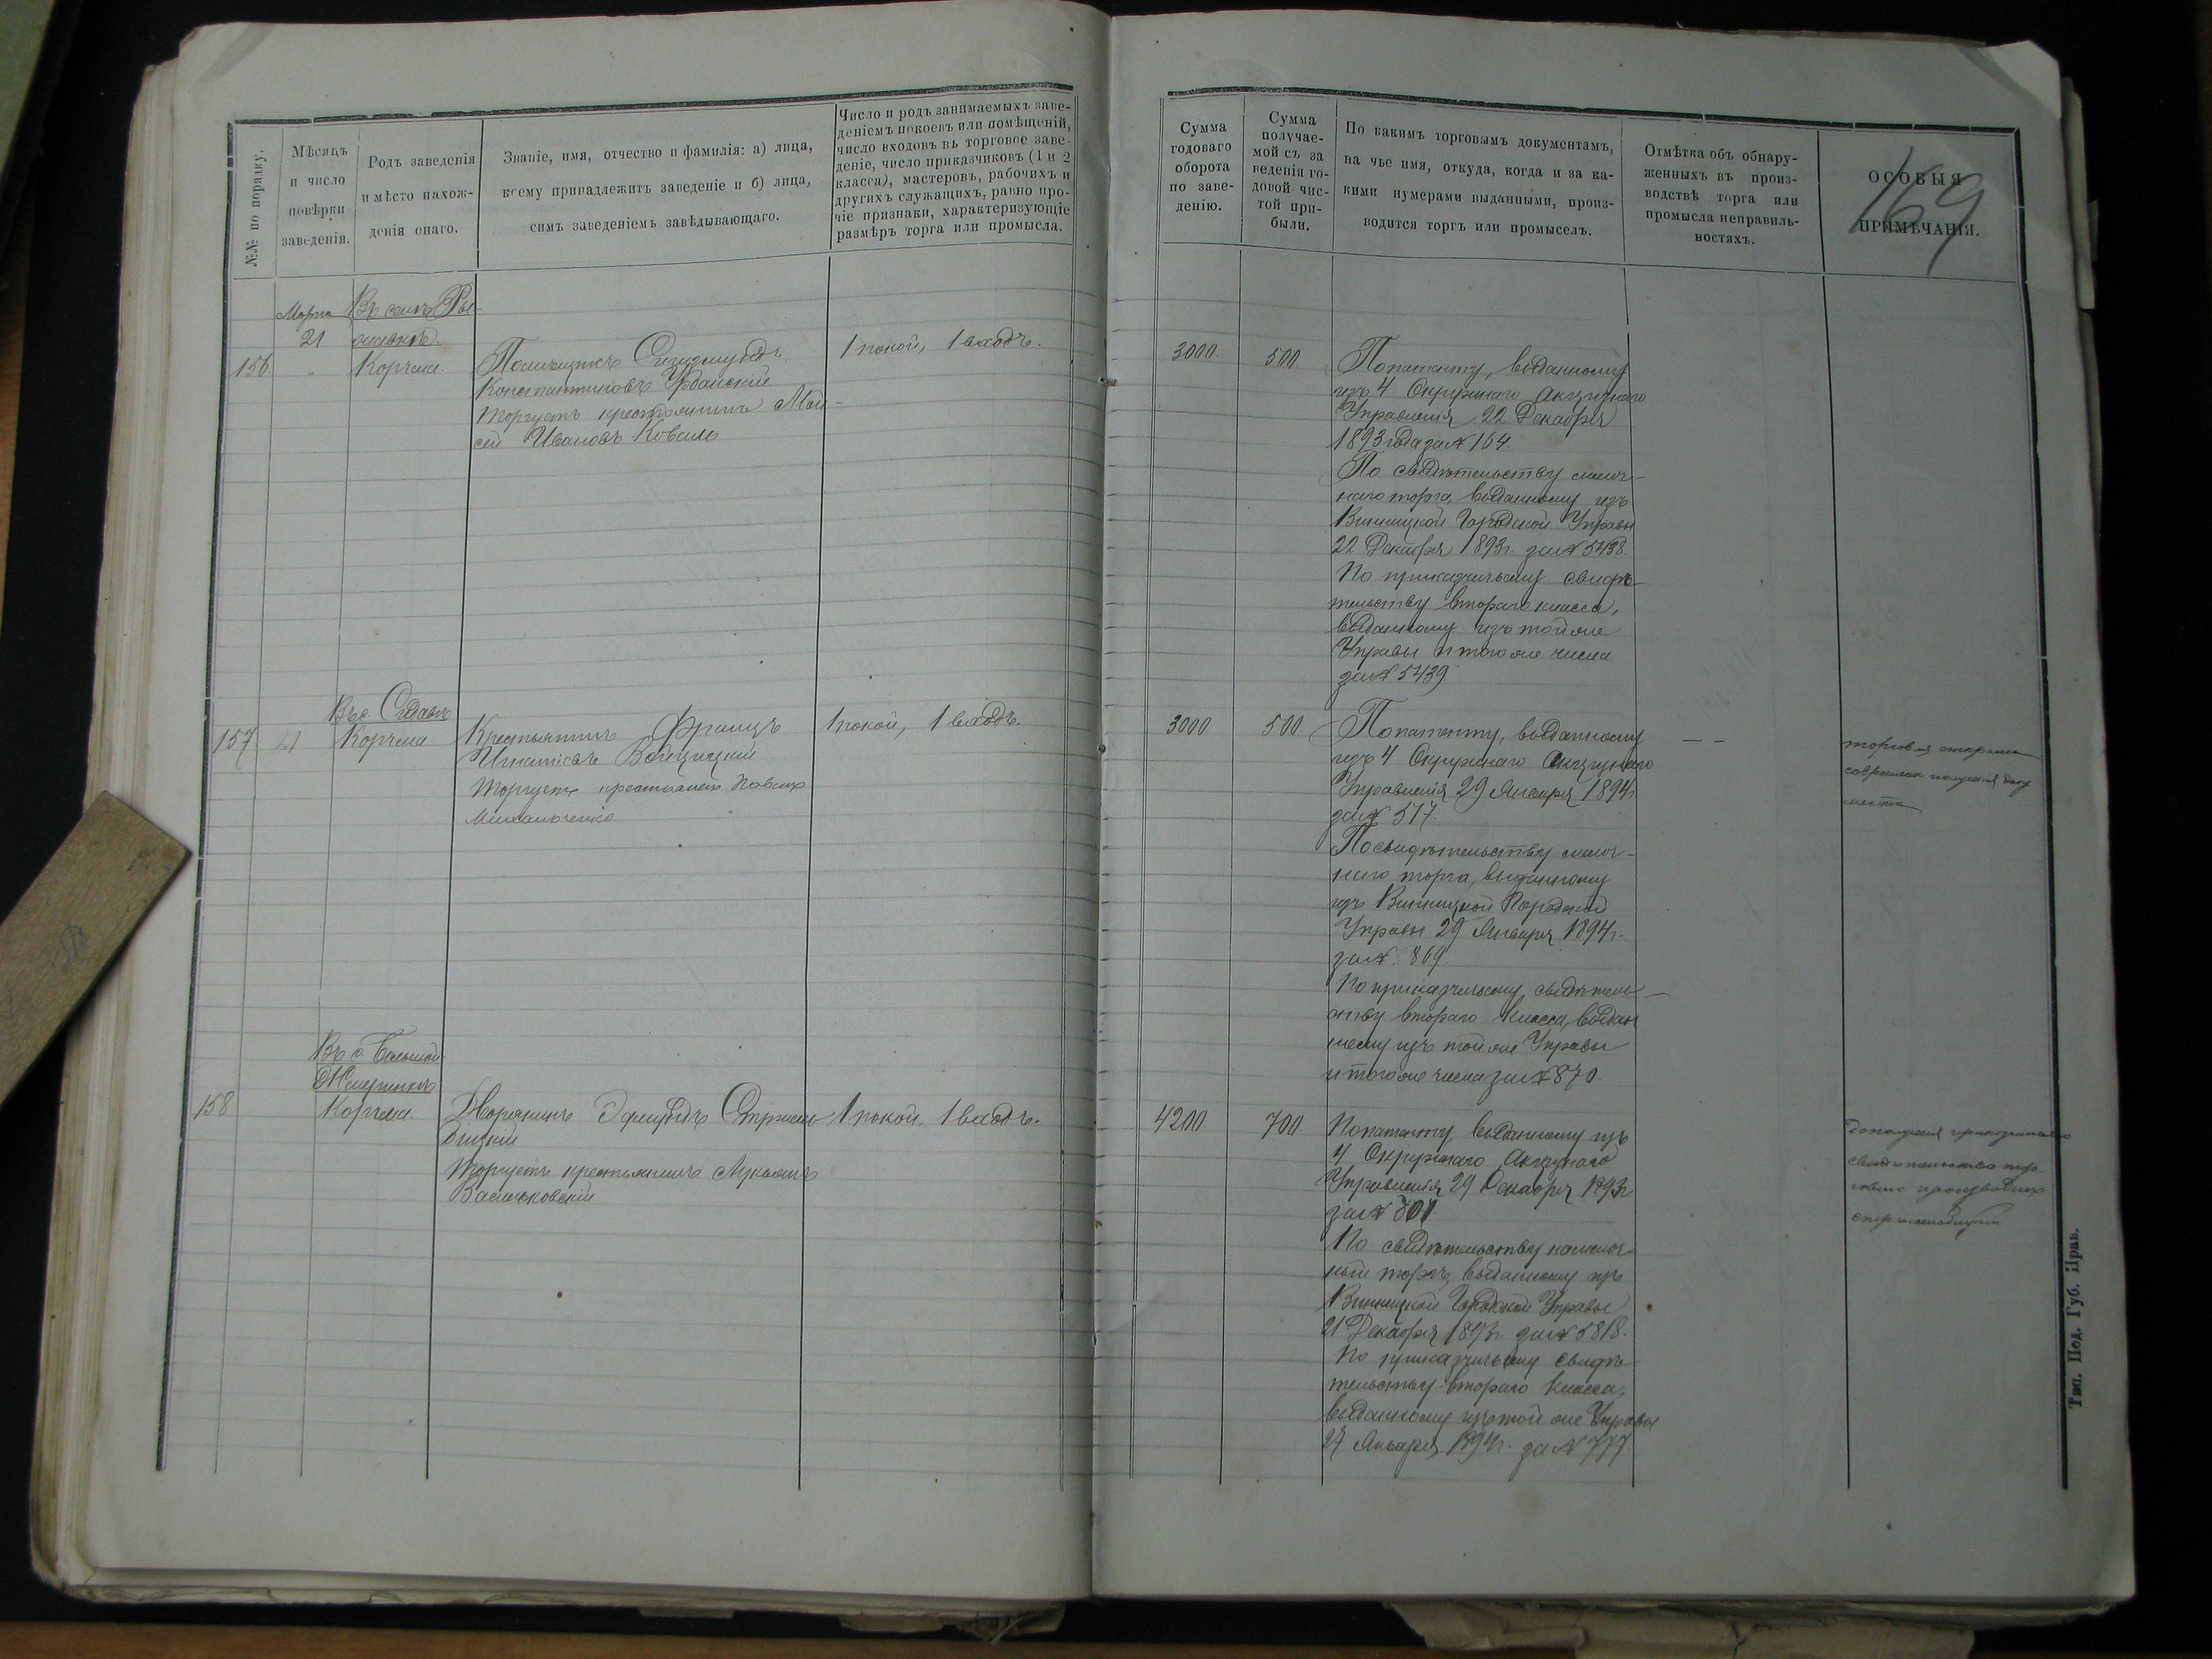 №№ по порядку.
Мѣсяцъ
и число
повѣрки
заведенія.
Родъ заведенія
и мѣсто нахож-
денія онаго.
Званіе, имя, отчество и фамилія: а) лица,
коему принадлежитъ заведеніе и б) лица,
симъ заведеніемъ завѣдывающаго.
Число и родъ занимаемыхъ заве-
деніемъ покоевъ или помѣщеній,
число входовъ въ торговое заве-
деніе, число приказчиковъ (1 и 2
класса), мастеровъ, рабочихъ и
другихъ служащихъ, равно про-
чіе признаки, характеризующіе
размѣръ торга или промысла.
Сумма
годоваго
оборота
по заве-
денію.
Сумма
получае-
мой съ за
веденія го-
довой чис-
той при-
были.
По какимъ торговымъ документамъ,
на чье имя, откуда, когда и за ка-
кими нумерами выданными, произ-
водится торгъ или промыселъ.
Отмѣтка объ обнару-
женныхъ въ произ-
водствѣ торга или
промысла неправиль-
ностяхъ.
ОСОБЫЯ
ПРИМѢЧАНІЯ.
169
Марта
21
Въ селѣ
156
Корчма
Помѣщикъ Сигизмундъ
Константиновъ
Торгуетъ крестьянинъ Мой-
сей Ивановъ Коваль
1 покой, 1 входъ.
3000.
500
По патенту, выданному
изъ 4 Окружнаго Акцизнаго
Управленія 22 Декабря
1893 года за № 164.
По свидѣтельству мелоч-
наго торга, выданному изъ
Винницкой Городской Управы
22 Декабря 1893 г. за № 5438.
По приказчичьему свидѣ-
тельству втораго класса,
выданному изъ той же
Управы и того же числа
за № 5439.
Въ с.
157
21
Корчма
Крестьянинъ Францъ
Игнатіевъ
Торгуетъ крестьянинъ Павелъ
1 покой, 1 входъ.
3000
500
По патенту, выданному
изъ 4 Окружнаго Акцизнаго
Управленія 29 Января 1894 г.
за № 517.
По свидѣтельству мелоч-
наго торга, выданному
изъ Винницкой Городской
Управы 29 Января 1894 г.
за № 869.
По приказчичьему свидѣтель-
ству втораго класса, выдан
ному изъ той же Управы
и того же числа за № 870.
торговля открыта
Въ с. Большой
Жмеринкѣ
158
Корчма
Дворянинъ Эдмундъ Стржем-
бицкій
Торгуетъ крестьянинъ Лукьянъ
Васильковскій
1 покой, 1 входъ.
4200.
700
По патенту выданному изъ
4 Окружнаго Акцизнаго
Управленія 29 Декабря 1893 г
за № 301
По свидѣтельству на мелоч-
ный торгъ, выданному изъ
Винницкой Городской Управы
21 Декабря 1893 г. за № 5818.
По приказчичьему свидѣ-
тельству втораго класса,
выданному изъ той же Управы
27 Января 1894 г. за № 777
свидѣтельства тор-
говлю производилъ
Тип. Под. Губ. Прав.